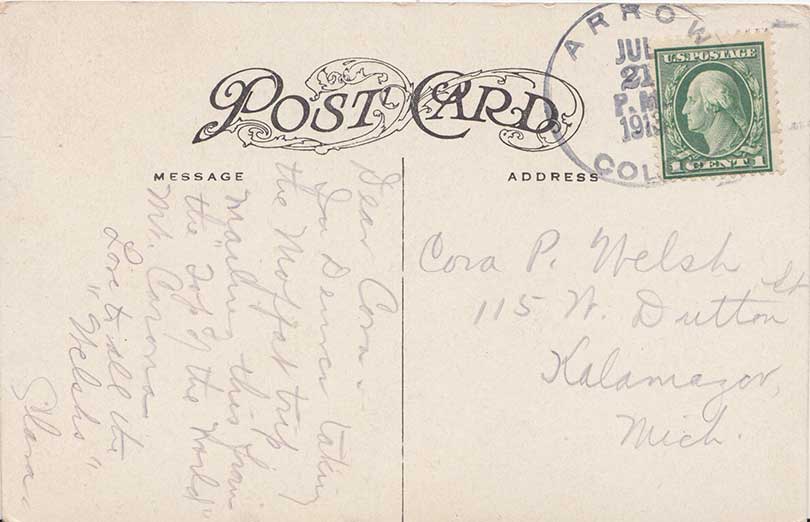 POST CARD
MESSAGE
ADDRESS
ARROW
JUL
21
P.M
1913
COL
U.S. POSTAGE
1 CENT 1
Dear Cora -
In Denver taking
the Moffat trip
mailing this from
the "Top of the World"
Mt. Corona.
Love to all the
"Welshs"
Cora P. Welsh
115 W. Dutton St
Kalamazoo,
Mich.